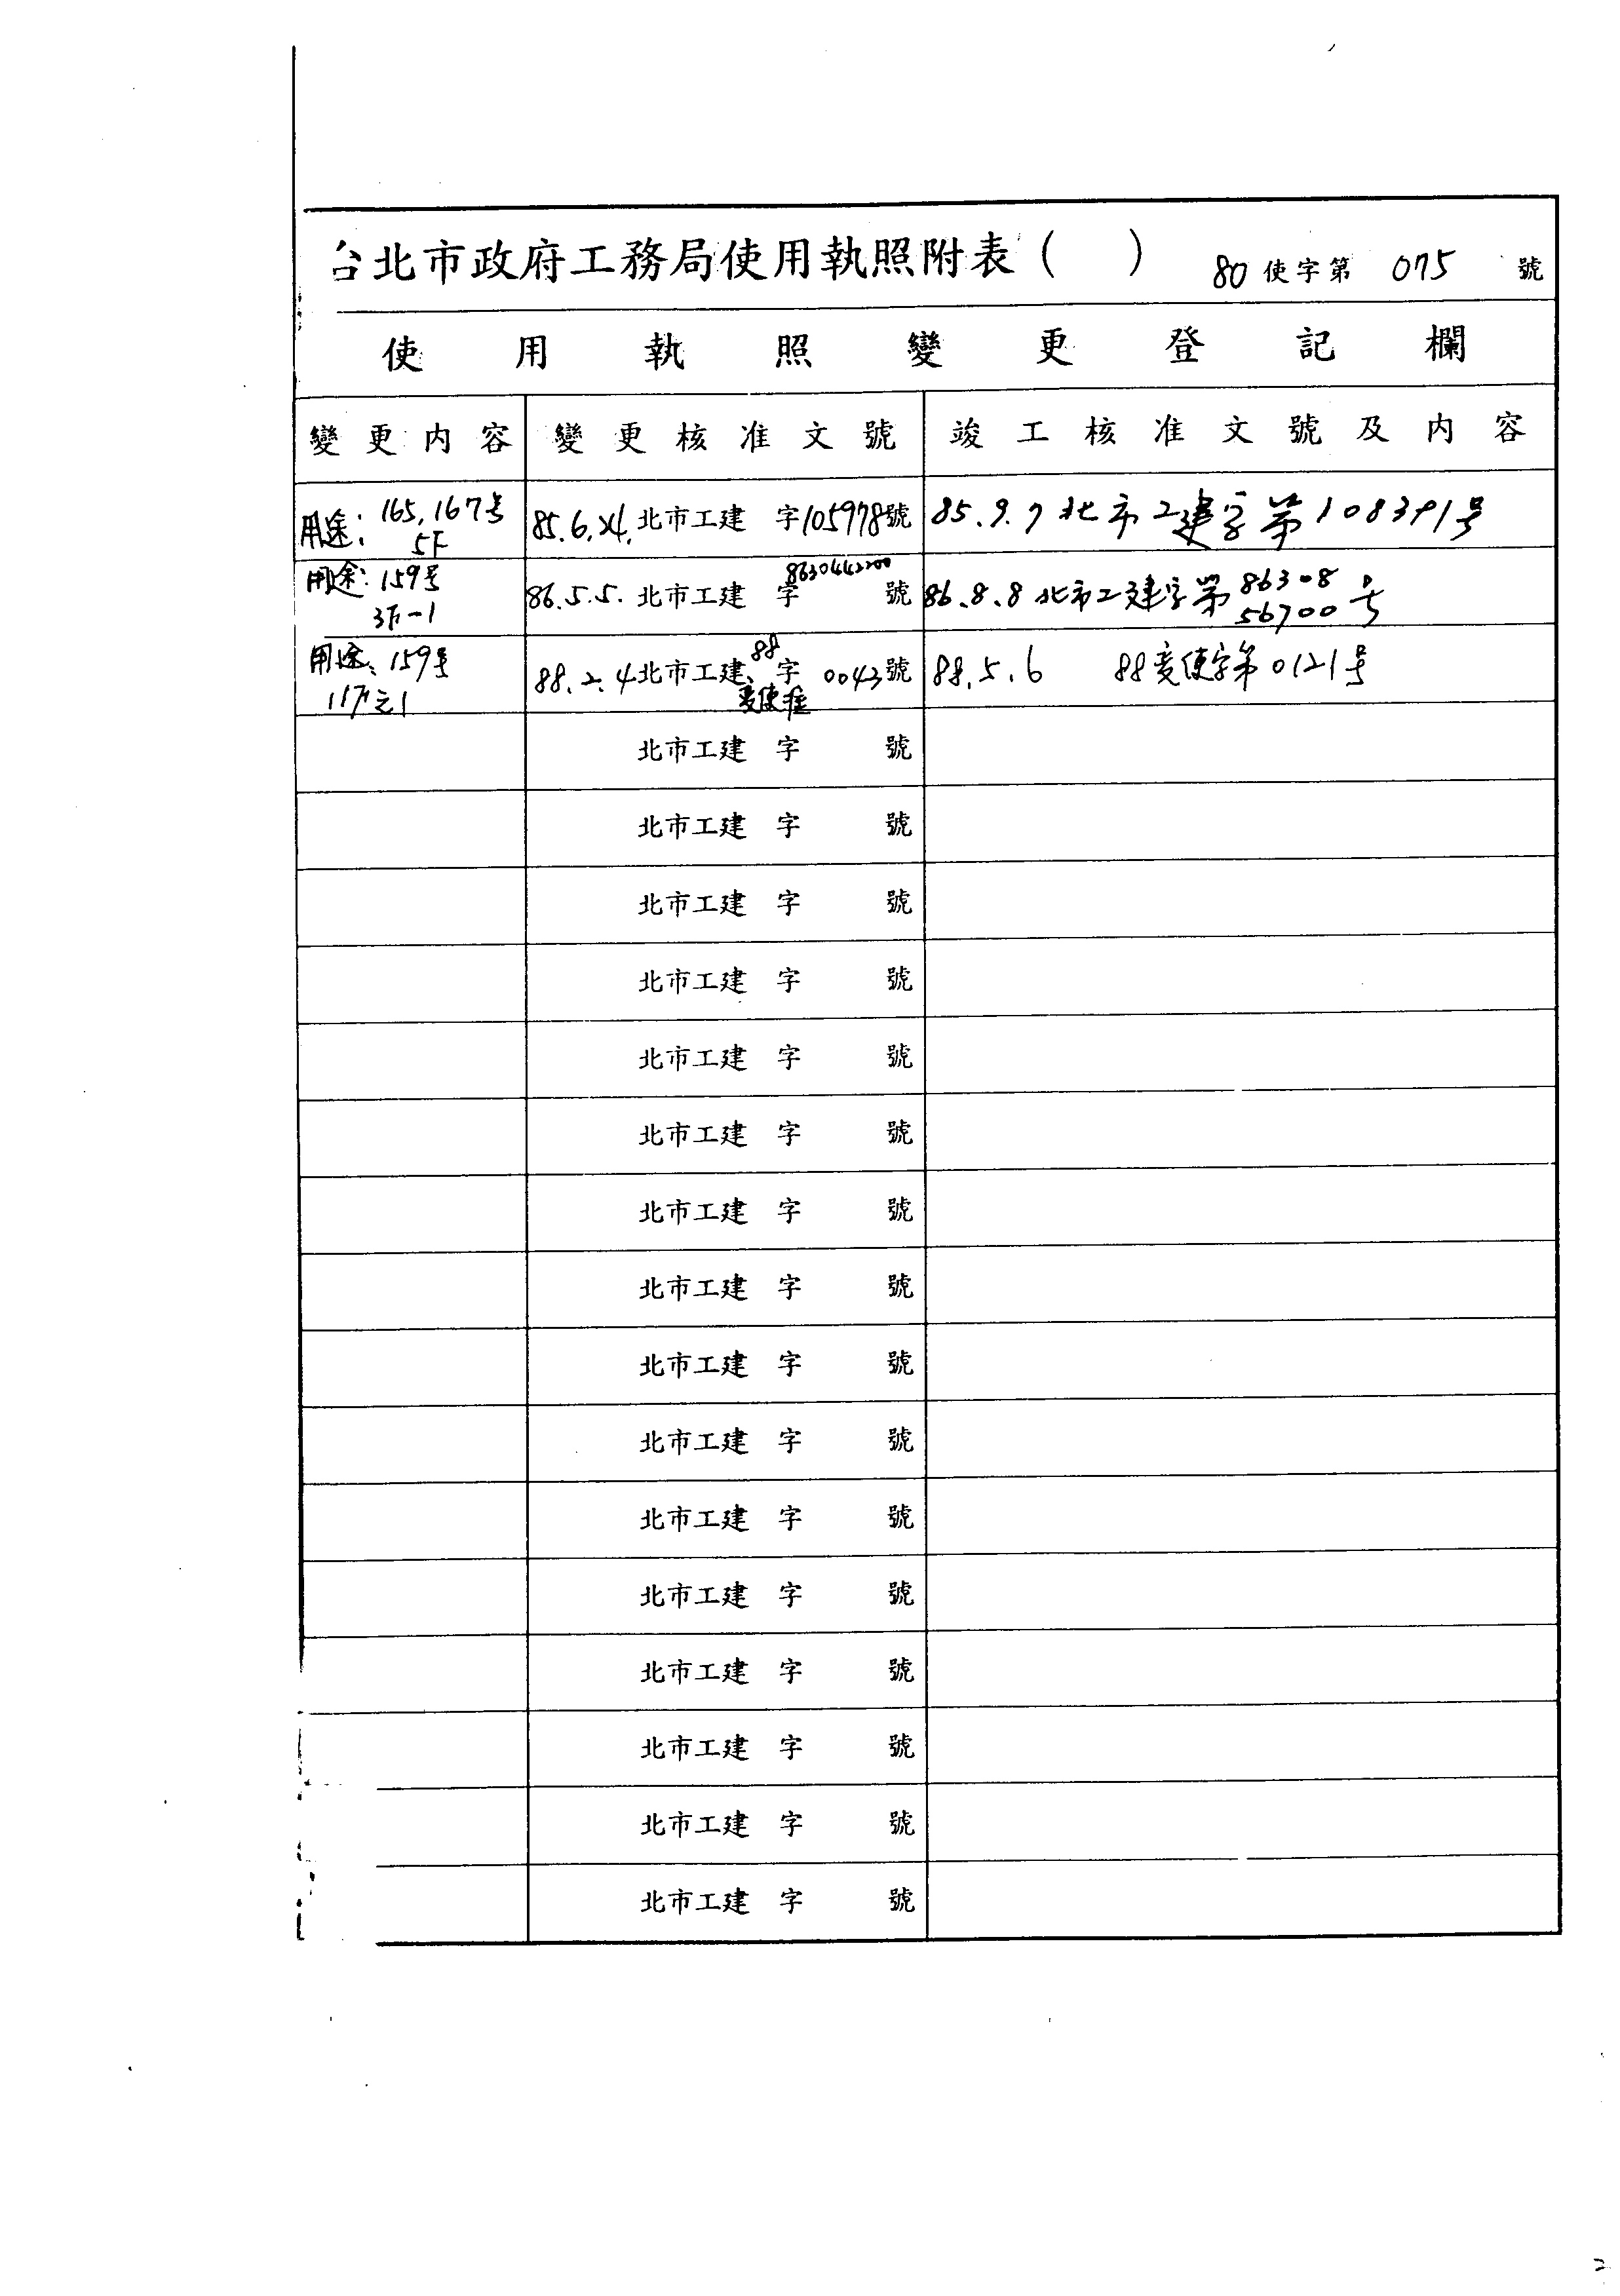 台北市政府工務局使用執照附表（　）　80使字第 075 號
使用執照變更登記欄
變更内容　變更核准文號　竣工核准文號及内容
用途：165,167号 5F　85.6.24. 北市工建 字105978號　85.9.7 北市工建字第108391号
用途：159号　86.5.5. 北市工建 字8630442200號　86.8.8 北市工建字第8630856700号
用途：159号　88.2.4 北市工建 88變使 字0043號　88.5.6 88变使字第0121号
北市工建　字　號
北市工建　字　號
北市工建　字　號
北市工建　字　號
北市工建　字　號
北市工建　字　號
北市工建　字　號
北市工建　字　號
北市工建　字　號
北市工建　字　號
北市工建　字　號
北市工建　字　號
北市工建　字　號
北市工建　字　號
北市工建　字　號
北市工建　字　號
2